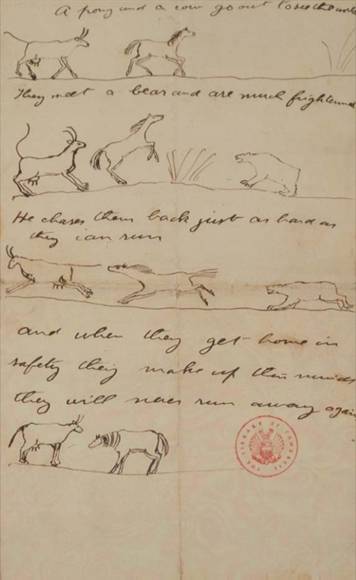 A pony and a cow go out to see the world
They meet a bear and are much frightened
He chases them back just as hard as
they can run
and when they get home in
safety they make up their minds
they will never run away again
THE LIBRARY OF CONGRESS